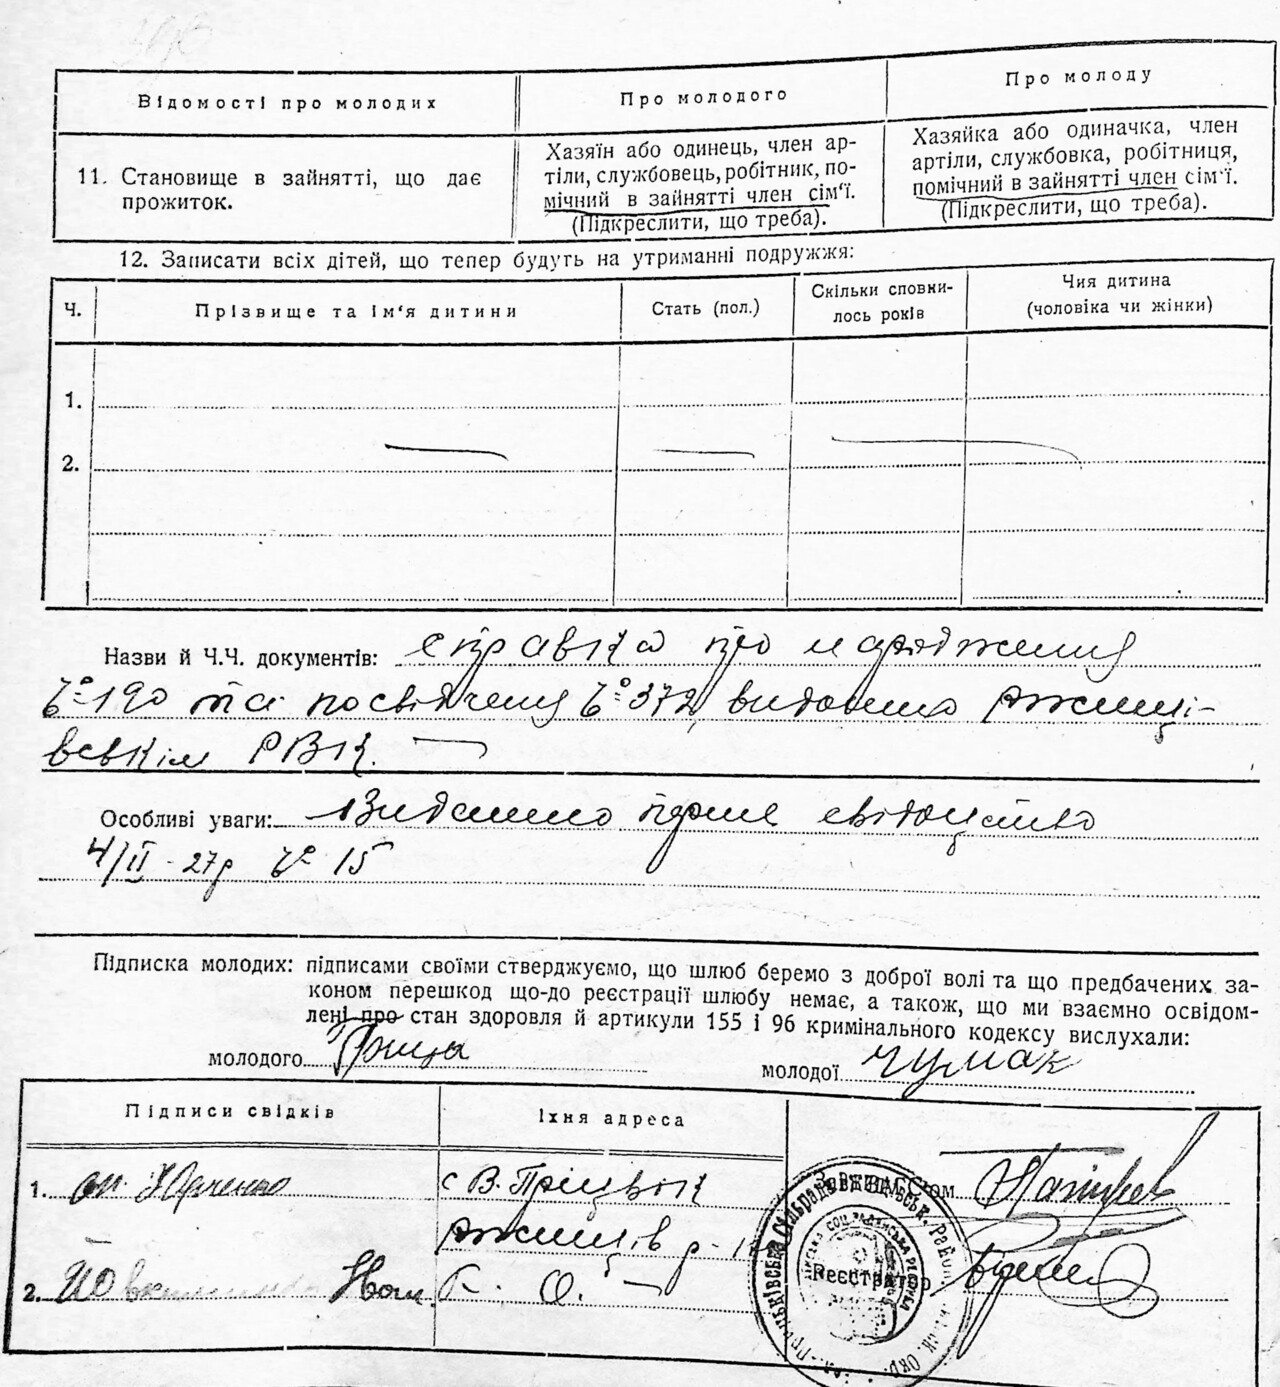 Відомості про молодих
Про молодого
Про молоду
11. Становище в зайнятті, що дає
прожиток.
Хазяїн або одинець, член ар-
тілі, службовець, робітник, по-
мічний в зайнятті член сім'ї.
(Підкреслити, що треба).
Хазяйка або одиначка, член
артілі, службовка, робітниця,
помічний в зайнятті член сім'ї.
(Підкреслити, що треба).
12. Записати всіх дітей, що тепер будуть на утриманні подружжя:
Ч.
Прізвище та ім'я дитини
Стать (пол.)
Скільки сповни-
лось років
Чия дитина
(чоловіка чи жінки)
1.
2.
Назви й Ч.Ч. документів: справка про народження
Ч° 190 та посвідчення Ч° 372, видано Яжиці-
вськім РВК.
Особливі уваги: Видано перше свідоцтво
4/II - 27р Ч° 15
Підписка молодих: підписами своїми стверджуємо, що шлюб беремо з доброї волі та що предбачених за-
коном перешкод що-до реєстрації шлюбу немає, а також, що ми взаємно освідом-
лені про стан здоровля й артикули 155 і 96 кримінального кодексу вислухали:
молодого
молодої Чумак
Підписи свідків
Їхня адреса
1. Юрченко
с В. Пріцьк
2.
Зав. ЗАГС'ом
Реєстратор